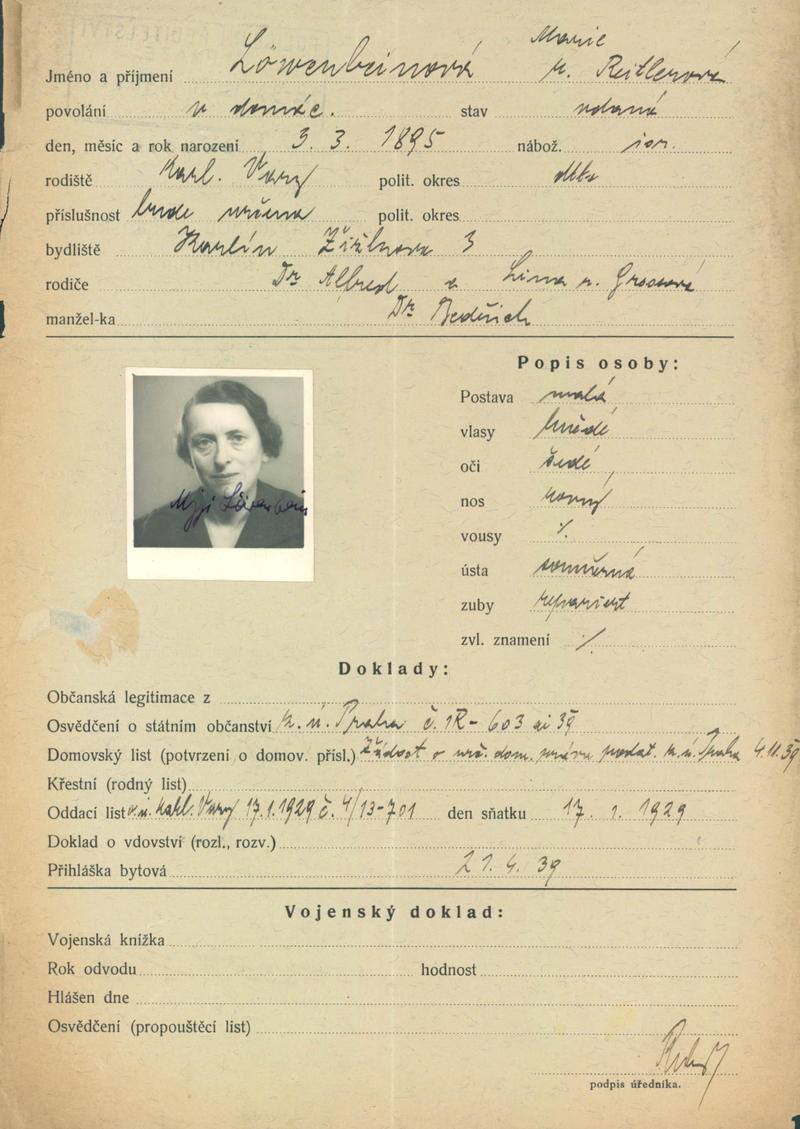 Jméno a příjmení Löwenbeinová Marie r. Reitlerová
povolání v domác. stav vdaná
den, měsíc a rok narození 3. 3. 1895 nábož. isr.
rodiště Karl. Vary polit. okres dtto
příslušnost bude určena polit. okres
bydliště Karlín Žižkova 3
rodiče Dr Albred a Lina r. Grossová
manžel-ka Dr Bedřich
Popis osoby:
Postava malá
vlasy hnědé
oči šedé
nos rovný
Mizi Löwenbein
vousy %
ústa souměrná
zuby repariert
zvl. znamení %
Doklady:
Občanská legitimace z
Osvědčení o státním občanství z. ú. Praha č. 1R-603 ai 39
Domovský list (potvrzení o domov. přísl.) Žádost o urč. dom. práva podat. z. ú. Praha 4.11.39
Křestní (rodný list)
Oddací list o. ú. Karl. Vary 17.1.1929 č. 4/13-701 den sňatku 17. 1. 1929
Doklad o vdovství (rozl., rozv.)
Přihláška bytová 21. 4. 39
Vojenský doklad:
Vojenská knížka
Rok odvodu hodnost
Hlášen dne
Osvědčení (propouštěcí list)
podpis úředníka.